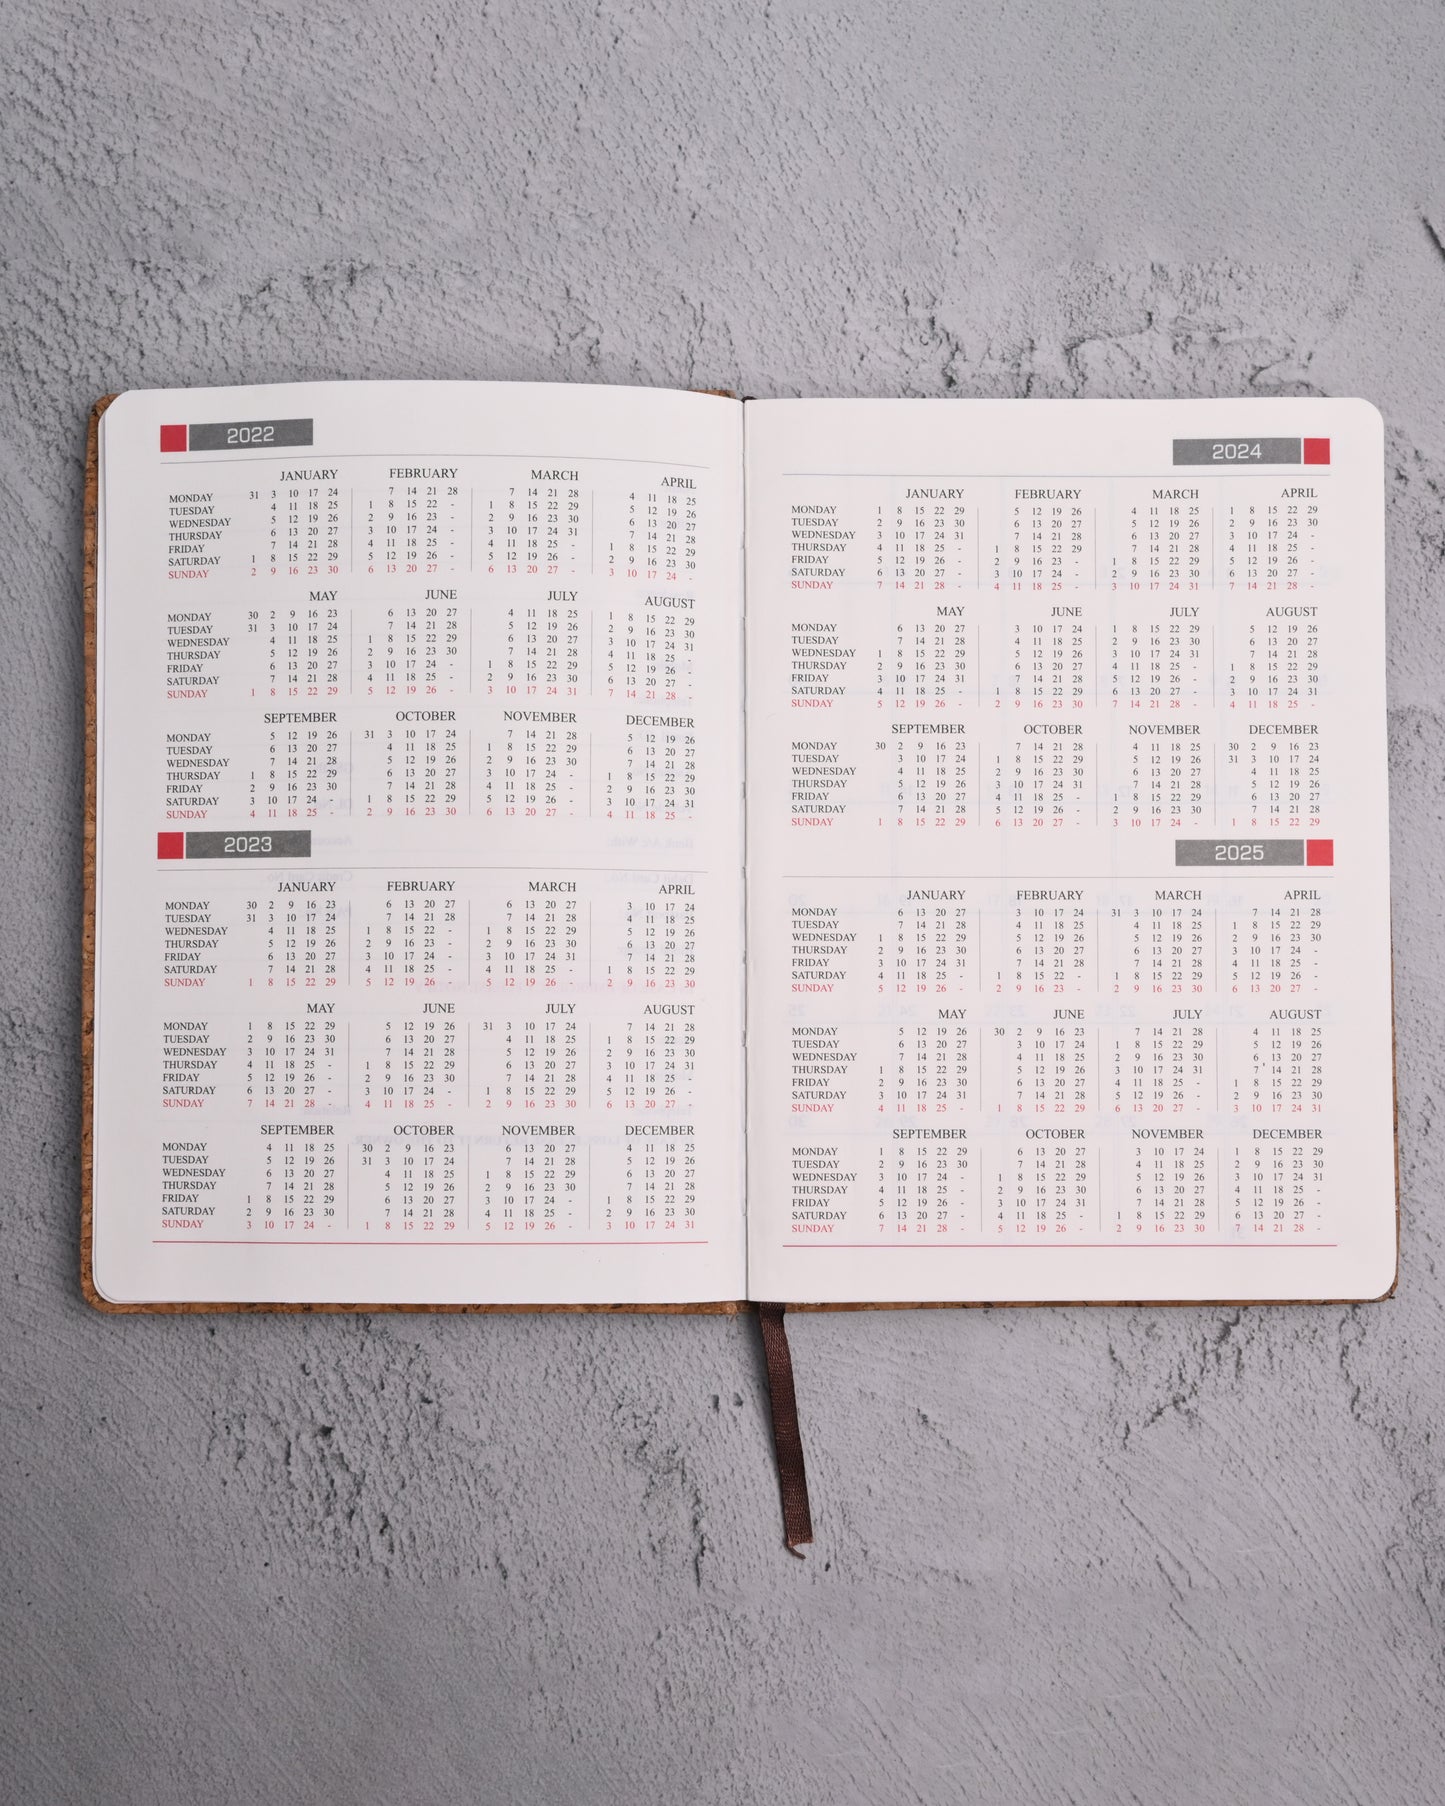 2022
JANUARY FEBRUARY MARCH APRIL
MONDAY 31 3 10 17 24 7 14 21 28 7 14 21 28 4 11 18 25
TUESDAY 4 11 18 25 1 8 15 22 - 1 8 15 22 29 5 12 19 26
WEDNESDAY 5 12 19 26 2 9 16 23 - 2 9 16 23 30 6 13 20 27
THURSDAY 6 13 20 27 3 10 17 24 - 3 10 17 24 31 7 14 21 28
FRIDAY 7 14 21 28 4 11 18 25 - 4 11 18 25 - 1 8 15 22 29
SATURDAY 1 8 15 22 29 5 12 19 26 - 5 12 19 26 - 2 9 16 23 30
SUNDAY 2 9 16 23 30 6 13 20 27 - 6 13 20 27 - 3 10 17 24 -
MAY JUNE JULY AUGUST
MONDAY 30 2 9 16 23 6 13 20 27 4 11 18 25 1 8 15 22 29
TUESDAY 31 3 10 17 24 7 14 21 28 5 12 19 26 2 9 16 23 30
WEDNESDAY 4 11 18 25 1 8 15 22 29 6 13 20 27 3 10 17 24 31
THURSDAY 5 12 19 26 2 9 16 23 30 7 14 21 28 4 11 18 25 -
FRIDAY 6 13 20 27 3 10 17 24 - 1 8 15 22 29 5 12 19 26 -
SATURDAY 7 14 21 28 4 11 18 25 - 2 9 16 23 30 6 13 20 27 -
SUNDAY 1 8 15 22 29 5 12 19 26 - 3 10 17 24 31 7 14 21 28 -
SEPTEMBER OCTOBER NOVEMBER DECEMBER
MONDAY 5 12 19 26 31 3 10 17 24 7 14 21 28 5 12 19 26
TUESDAY 6 13 20 27 4 11 18 25 1 8 15 22 29 6 13 20 27
WEDNESDAY 7 14 21 28 5 12 19 26 2 9 16 23 30 7 14 21 28
THURSDAY 1 8 15 22 29 6 13 20 27 3 10 17 24 - 1 8 15 22 29
FRIDAY 2 9 16 23 30 7 14 21 28 4 11 18 25 - 2 9 16 23 30
SATURDAY 3 10 17 24 - 1 8 15 22 29 5 12 19 26 - 3 10 17 24 31
SUNDAY 4 11 18 25 - 2 9 16 23 30 6 13 20 27 - 4 11 18 25 -
2023
JANUARY FEBRUARY MARCH APRIL
MONDAY 30 2 9 16 23 6 13 20 27 6 13 20 27 3 10 17 24
TUESDAY 31 3 10 17 24 7 14 21 28 7 14 21 28 4 11 18 25
WEDNESDAY 4 11 18 25 1 8 15 22 - 1 8 15 22 29 5 12 19 26
THURSDAY 5 12 19 26 2 9 16 23 - 2 9 16 23 30 6 13 20 27
FRIDAY 6 13 20 27 3 10 17 24 - 3 10 17 24 31 7 14 21 28
SATURDAY 7 14 21 28 4 11 18 25 - 4 11 18 25 - 1 8 15 22 29
SUNDAY 1 8 15 22 29 5 12 19 26 - 5 12 19 26 - 2 9 16 23 30
MAY JUNE JULY AUGUST
MONDAY 1 8 15 22 29 5 12 19 26 31 3 10 17 24 7 14 21 28
TUESDAY 2 9 16 23 30 6 13 20 27 4 11 18 25 1 8 15 22 29
WEDNESDAY 3 10 17 24 31 7 14 21 28 5 12 19 26 2 9 16 23 30
THURSDAY 4 11 18 25 - 1 8 15 22 29 6 13 20 27 3 10 17 24 31
FRIDAY 5 12 19 26 - 2 9 16 23 30 7 14 21 28 4 11 18 25 -
SATURDAY 6 13 20 27 - 3 10 17 24 - 1 8 15 22 29 5 12 19 26 -
SUNDAY 7 14 21 28 - 4 11 18 25 - 2 9 16 23 30 6 13 20 27 -
SEPTEMBER OCTOBER NOVEMBER DECEMBER
MONDAY 4 11 18 25 30 2 9 16 23 6 13 20 27 4 11 18 25
TUESDAY 5 12 19 26 31 3 10 17 24 7 14 21 28 5 12 19 26
WEDNESDAY 6 13 20 27 4 11 18 25 1 8 15 22 29 6 13 20 27
THURSDAY 7 14 21 28 5 12 19 26 2 9 16 23 30 7 14 21 28
FRIDAY 1 8 15 22 29 6 13 20 27 3 10 17 24 - 1 8 15 22 29
SATURDAY 2 9 16 23 30 7 14 21 28 4 11 18 25 - 2 9 16 23 30
SUNDAY 3 10 17 24 - 1 8 15 22 29 5 12 19 26 - 3 10 17 24 31
2024
JANUARY FEBRUARY MARCH APRIL
MONDAY 1 8 15 22 29 5 12 19 26 4 11 18 25 1 8 15 22 29
TUESDAY 2 9 16 23 30 6 13 20 27 5 12 19 26 2 9 16 23 30
WEDNESDAY 3 10 17 24 31 7 14 21 28 6 13 20 27 3 10 17 24 -
THURSDAY 4 11 18 25 - 1 8 15 22 29 7 14 21 28 4 11 18 25 -
FRIDAY 5 12 19 26 - 2 9 16 23 - 1 8 15 22 29 5 12 19 26 -
SATURDAY 6 13 20 27 - 3 10 17 24 - 2 9 16 23 30 6 13 20 27 -
SUNDAY 7 14 21 28 - 4 11 18 25 - 3 10 17 24 31 7 14 21 28 -
MAY JUNE JULY AUGUST
MONDAY 6 13 20 27 3 10 17 24 1 8 15 22 29 5 12 19 26
TUESDAY 7 14 21 28 4 11 18 25 2 9 16 23 30 6 13 20 27
WEDNESDAY 1 8 15 22 29 5 12 19 26 3 10 17 24 31 7 14 21 28
THURSDAY 2 9 16 23 30 6 13 20 27 4 11 18 25 - 1 8 15 22 29
FRIDAY 3 10 17 24 31 7 14 21 28 5 12 19 26 - 2 9 16 23 30
SATURDAY 4 11 18 25 - 1 8 15 22 29 6 13 20 27 - 3 10 17 24 31
SUNDAY 5 12 19 26 - 2 9 16 23 30 7 14 21 28 - 4 11 18 25 -
SEPTEMBER OCTOBER NOVEMBER DECEMBER
MONDAY 30 2 9 16 23 7 14 21 28 4 11 18 25 30 2 9 16 23
TUESDAY 3 10 17 24 1 8 15 22 29 5 12 19 26 31 3 10 17 24
WEDNESDAY 4 11 18 25 2 9 16 23 30 6 13 20 27 4 11 18 25
THURSDAY 5 12 19 26 3 10 17 24 31 7 14 21 28 5 12 19 26
FRIDAY 6 13 20 27 4 11 18 25 - 1 8 15 22 29 6 13 20 27
SATURDAY 7 14 21 28 5 12 19 26 - 2 9 16 23 30 7 14 21 28
SUNDAY 1 8 15 22 29 6 13 20 27 - 3 10 17 24 - 1 8 15 22 29
2025
JANUARY FEBRUARY MARCH APRIL
MONDAY 6 13 20 27 3 10 17 24 31 3 10 17 24 7 14 21 28
TUESDAY 7 14 21 28 4 11 18 25 4 11 18 25 1 8 15 22 29
WEDNESDAY 1 8 15 22 29 5 12 19 26 5 12 19 26 2 9 16 23 30
THURSDAY 2 9 16 23 30 6 13 20 27 6 13 20 27 3 10 17 24 -
FRIDAY 3 10 17 24 31 7 14 21 28 7 14 21 28 4 11 18 25 -
SATURDAY 4 11 18 25 - 1 8 15 22 - 1 8 15 22 29 5 12 19 26 -
SUNDAY 5 12 19 26 - 2 9 16 23 - 2 9 16 23 30 6 13 20 27 -
MAY JUNE JULY AUGUST
MONDAY 5 12 19 26 30 2 9 16 23 7 14 21 28 4 11 18 25
TUESDAY 6 13 20 27 3 10 17 24 1 8 15 22 29 5 12 19 26
WEDNESDAY 7 14 21 28 4 11 18 25 2 9 16 23 30 6 13 20 27
THURSDAY 1 8 15 22 29 5 12 19 26 3 10 17 24 31 7 14 21 28
FRIDAY 2 9 16 23 30 6 13 20 27 4 11 18 25 - 1 8 15 22 29
SATURDAY 3 10 17 24 31 7 14 21 28 5 12 19 26 - 2 9 16 23 30
SUNDAY 4 11 18 25 - 1 8 15 22 29 6 13 20 27 - 3 10 17 24 31
SEPTEMBER OCTOBER NOVEMBER DECEMBER
MONDAY 1 8 15 22 29 6 13 20 27 3 10 17 24 1 8 15 22 29
TUESDAY 2 9 16 23 30 7 14 21 28 4 11 18 25 2 9 16 23 30
WEDNESDAY 3 10 17 24 - 1 8 15 22 29 5 12 19 26 3 10 17 24 31
THURSDAY 4 11 18 25 - 2 9 16 23 30 6 13 20 27 4 11 18 25 -
FRIDAY 5 12 19 26 - 3 10 17 24 31 7 14 21 28 5 12 19 26 -
SATURDAY 6 13 20 27 - 4 11 18 25 - 1 8 15 22 29 6 13 20 27 -
SUNDAY 7 14 21 28 - 5 12 19 26 - 2 9 16 23 30 7 14 21 28 -